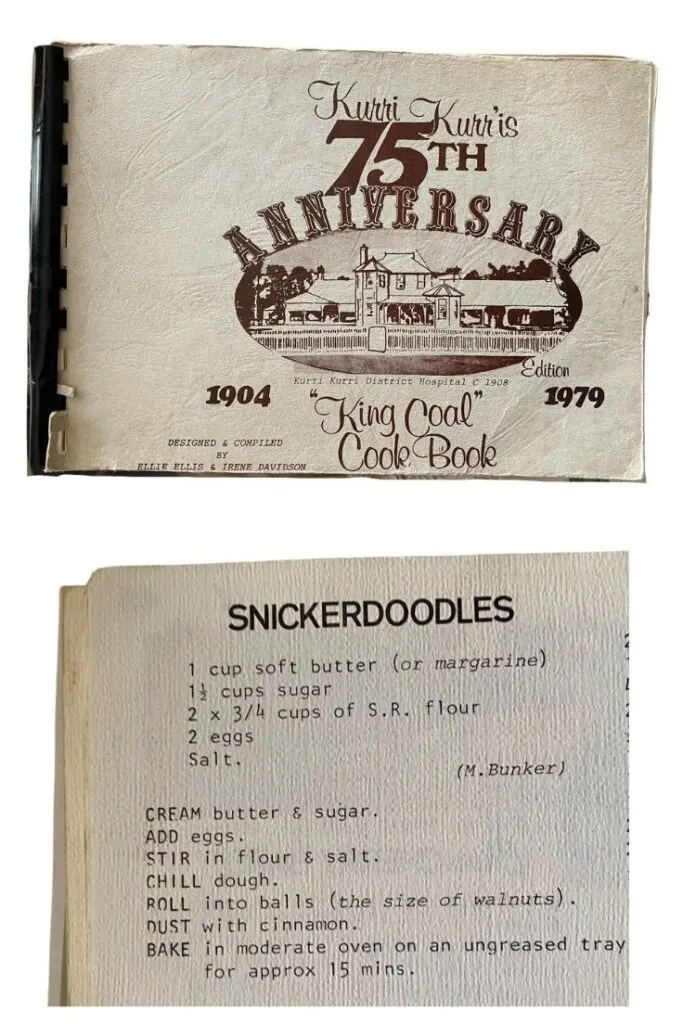 Kurri Kurr'is
75TH
ANNIVERSARY
Edition
Kurri Kurri District Hospital C 1908
1904
1979
"King Coal"
Cook Book
DESIGNED & COMPILED
BY
ELLIE ELLIS & IRENE DAVIDSON
SNICKERDOODLES
1 cup soft butter (or margarine)
1½ cups sugar
2 x 3/4 cups of S.R. flour
2 eggs
Salt.
(M.Bunker)
CREAM butter & sugar.
ADD eggs.
STIR in flour & salt.
CHILL dough.
ROLL into balls (the size of walnuts).
DUST with cinnamon.
BAKE in moderate oven on an ungreased tray
for approx 15 mins.